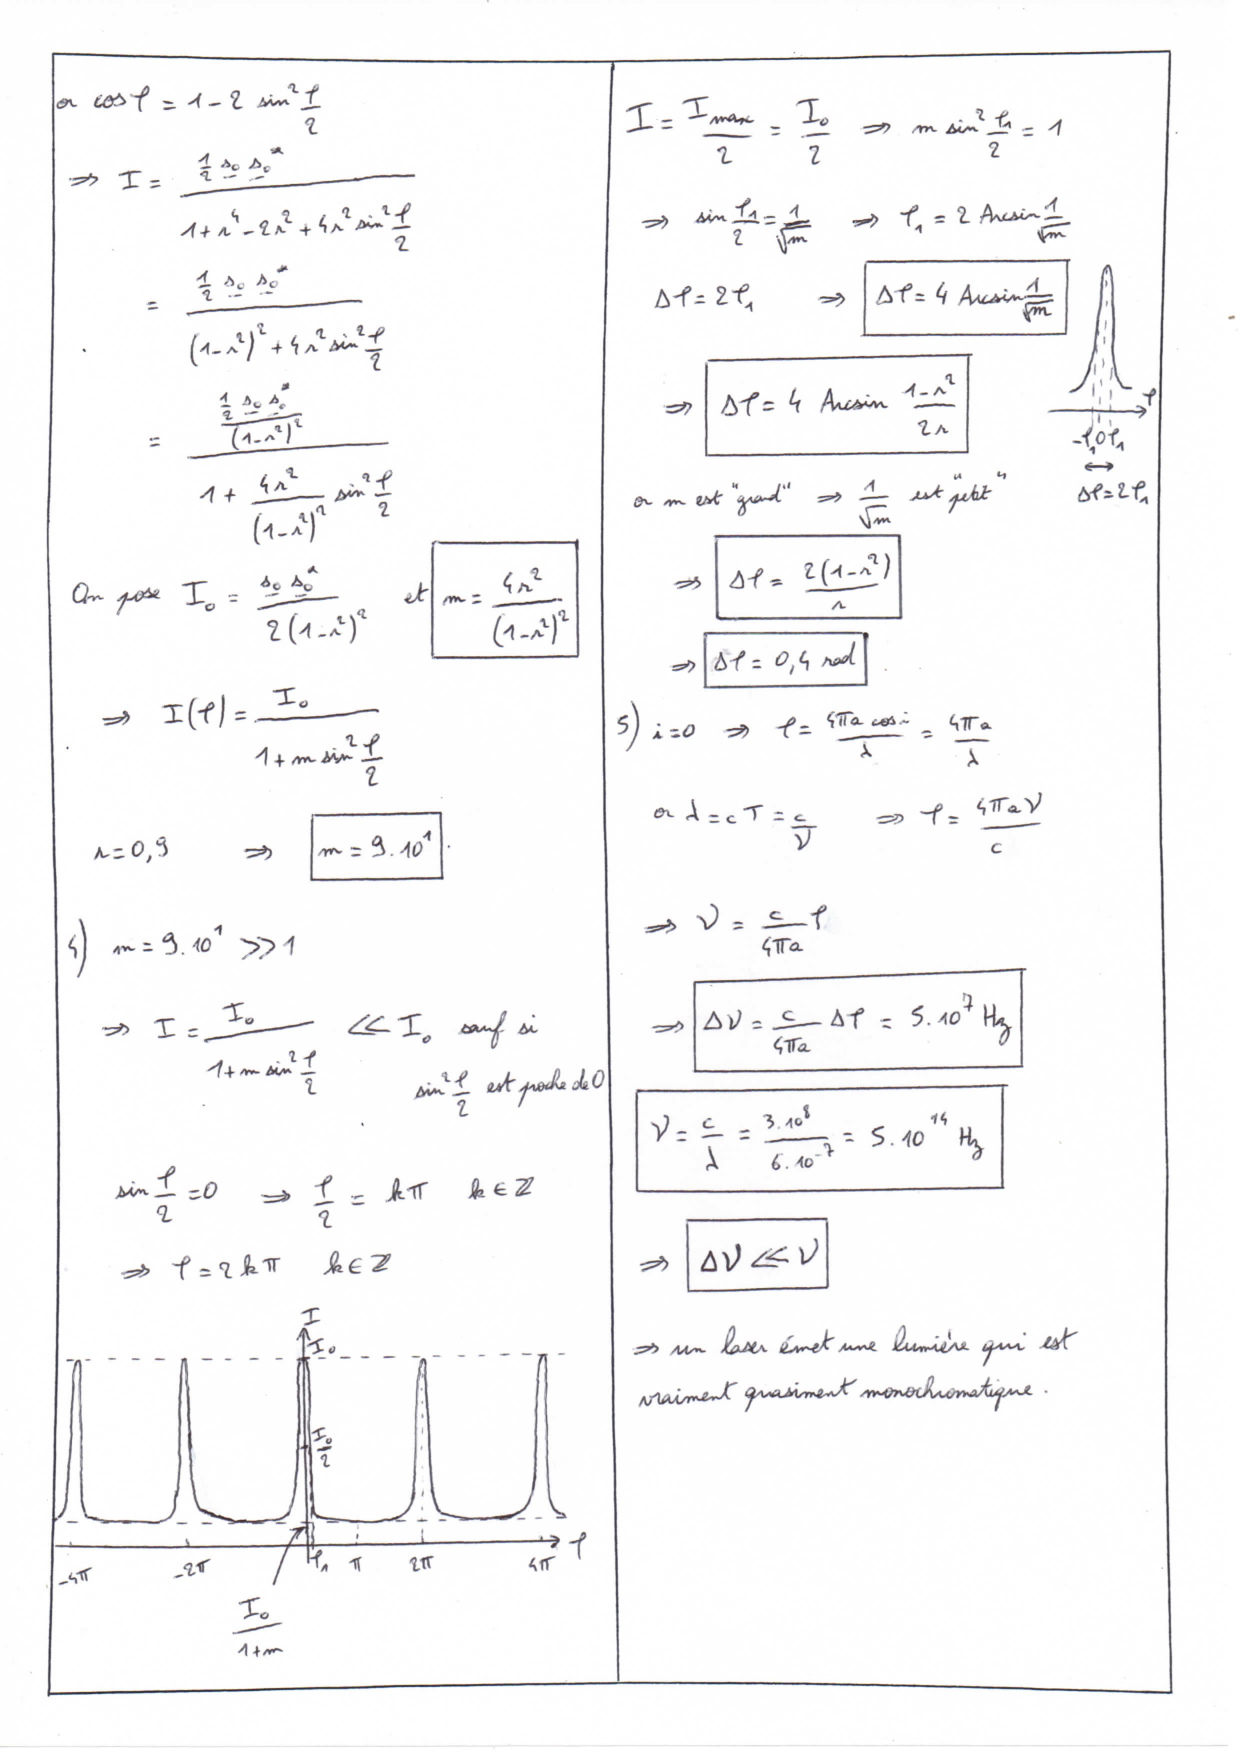 or cos φ = 1 - 2 sin² φ/2
⇒ I = (1/2 s₀ s₀*) / (1 + r⁴ - 2r² + 4r² sin² φ/2)
= (1/2 s₀ s₀*) / ((1-r²)² + 4r² sin² φ/2)
= ((1/2 s₀ s₀*) / (1-r²)²) / (1 + 4r²/(1-r²)² sin² φ/2)
On pose I₀ = s₀ s₀* / 2(1-r²)² et m = 4r²/(1-r²)²
⇒ I(φ) = I₀ / (1 + m sin² φ/2)
r = 0,9 ⇒ m = 9.10¹
4) m = 9.10¹ >> 1
⇒ I = I₀ / (1 + m sin² φ/2) << I₀ sauf si
sin² φ/2 est proche de 0
sin φ/2 = 0 ⇒ φ/2 = kπ k ∈ ℤ
⇒ φ = 2kπ k ∈ ℤ
I
I₀
I₀/2
-4π -2π φ₁ π 2π 4π φ
I₀/(1+m)
I = Imax/2 = I₀/2 ⇒ m sin² φ₁/2 = 1
⇒ sin φ₁/2 = 1/√m ⇒ φ₁ = 2 Arcsin 1/√m
Δφ = 2φ₁ ⇒ Δφ = 4 Arcsin 1/√m
⇒ Δφ = 4 Arcsin (1-r²)/2r
φ
-φ₁ 0 φ₁
Δφ = 2φ₁
or m est "grand" ⇒ 1/√m est "petit"
⇒ Δφ = 2(1-r²)/r
⇒ Δφ = 0,4 rad
5) i = 0 ⇒ φ = 4πa cos i/λ = 4πa/λ
or λ = cT = c/ν ⇒ φ = 4πaν/c
⇒ ν = c/4πa φ
⇒ Δν = c/4πa Δφ = 5.10⁷ Hz
ν = c/λ = 3.10⁸/6.10⁻⁷ = 5.10¹⁴ Hz
⇒ Δν << ν
⇒ un laser émet une lumière qui est
vraiment quasiment monochromatique.